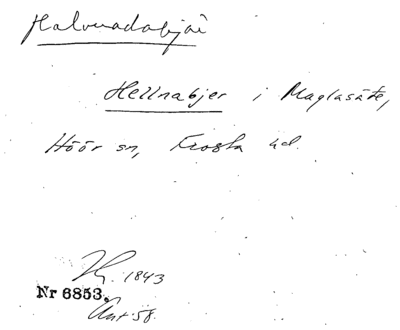 Halvnadabjär
Hellnabjer i Maglasäte,
Höör sn, Frosta hd.
1843
Nr 6853.
Ant. 58.